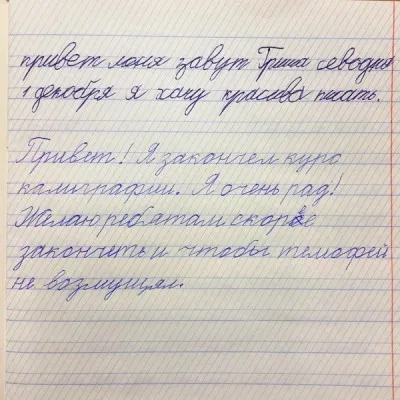 привет моня завут Гриша севодня
1 декобря я хачу красива писать.
Привет! Я закончел курс
калиграфии. Я очень рад!
Желаю ребятам скорее
закончеть и чтобы темофей
не возмущял.